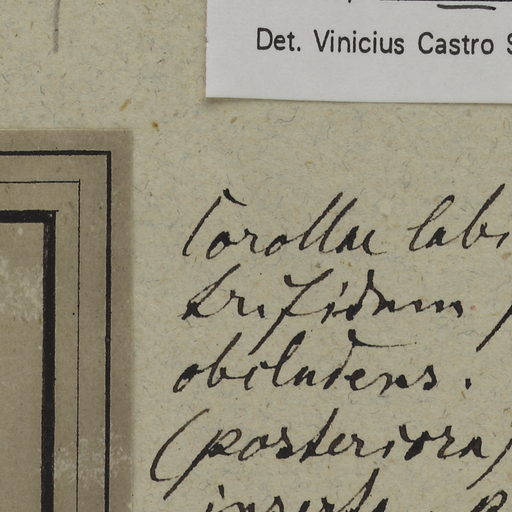 Det. Vinicius Castro S
Corollae labi
trifidum
obcludens.
(posteriora)
inserta . p